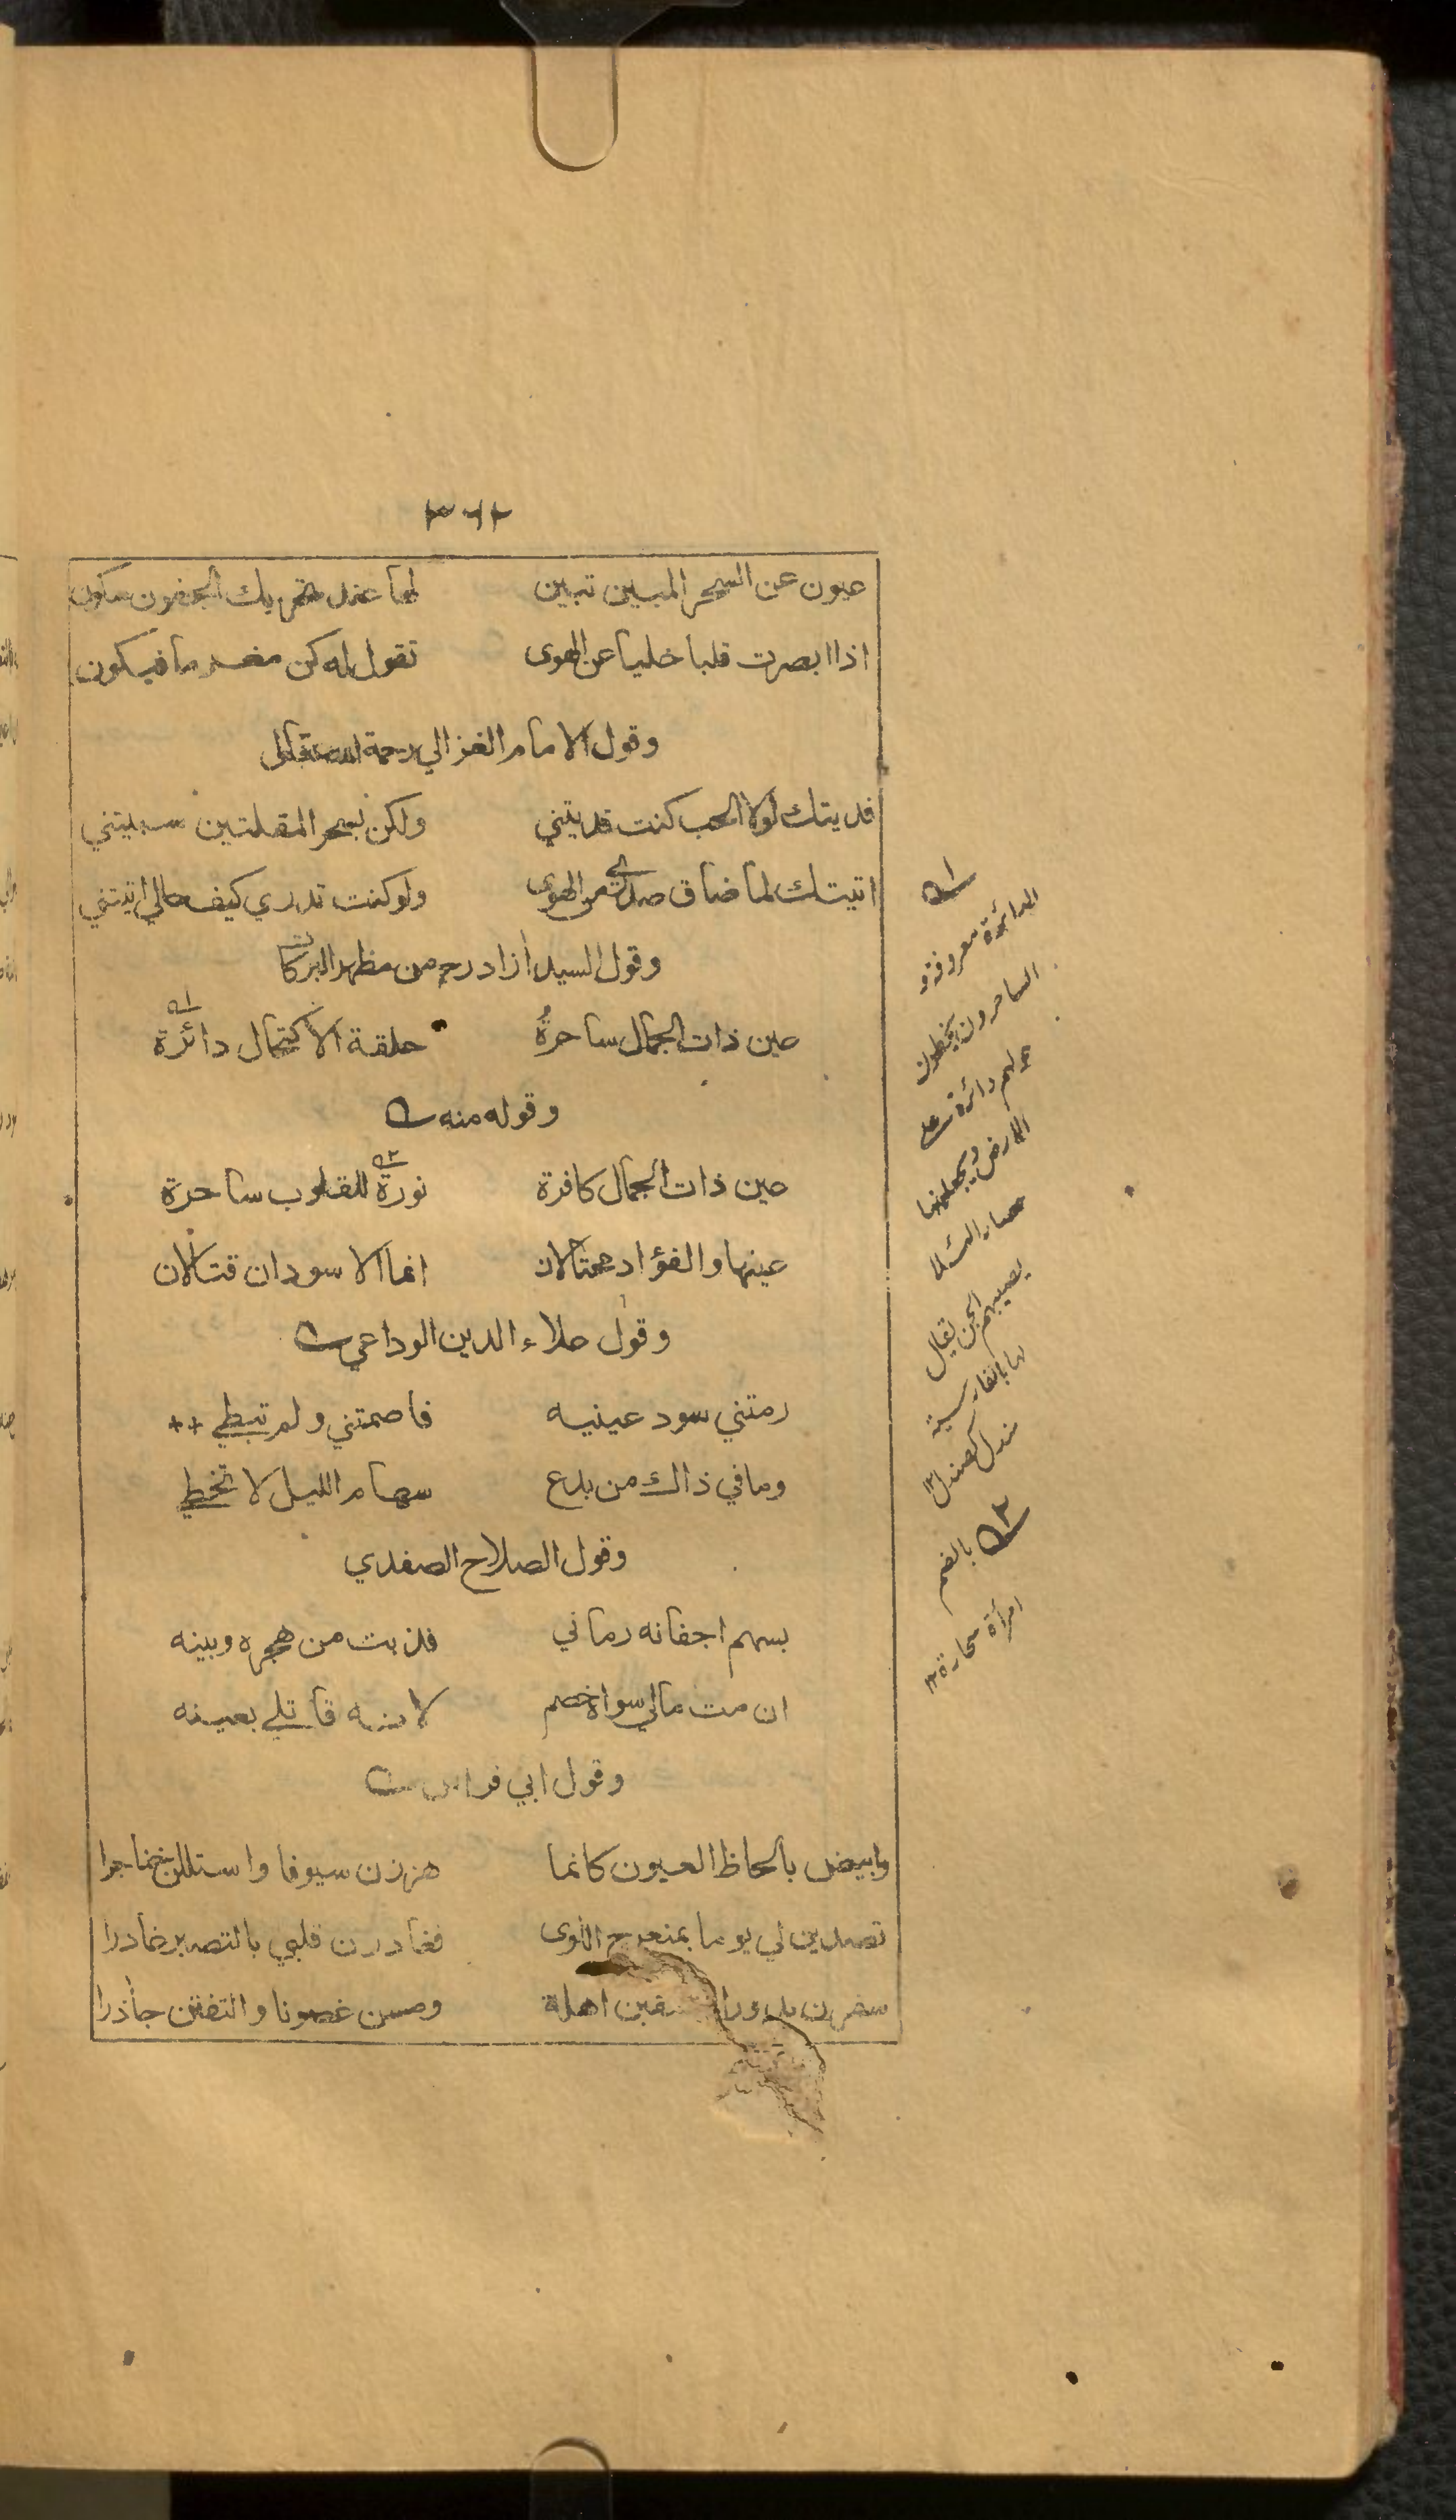 ٣٦٢
عيون عن السحر المبين تبين لها عند تحريك الجفون سكون
اذا ابصرت قلبا خليا عن الهوى تقول له كن مغرما فيكون
وقول الامام الغزالي رحمة الله تعالى
فديتك لولا الحب كنت فديتني ولكن بسحر المقلتين سبيتني
اتيتك لما ضاق صدري من الهوى ولو كنت تدري كيف حالي اتيتني
وقول السيد ازاد رح من مظهر البركات
عين ذات الجمال ساحرةٌ حلقة الاكتحال دائرة
وقوله منه
عين ذات الجمال كافرة نورة للقلوب ساحرة
عينها والفؤاد محتالان انما الاسودان قتالان
وقول علاء الدين الوداعي
رمتني سود عينيه فاصمتني ولم تبطي
وما في ذاك من بدع سهام الليل لا تخطي
وقول الصلاح الصفدي
بسهم اجفانه رماني فذبت من هجره وبينه
ان مت مالي سواه خصم لانه قاتلي بعينه
وقول ابي فراس
وابيض بالحاظ العيون كانما هززن سيوفا واستللن خناجرا
تصدين لي يوما بمنعرج اللوى فغادرن قلبي بالتصبر غادرا
سفرن بدورا اهلة ومسن غصونا والتفتن جأذرا
١
الدائرة معروفة و
الساحرون يخطون
حولهم دائرة على
الارض ويجعلونها
حصارا لئلا
يصيبهم الجن يقال
لها بالفارسية
مندل كصندل ١٢
٢ بالضم
امرأة سحارة ١٢